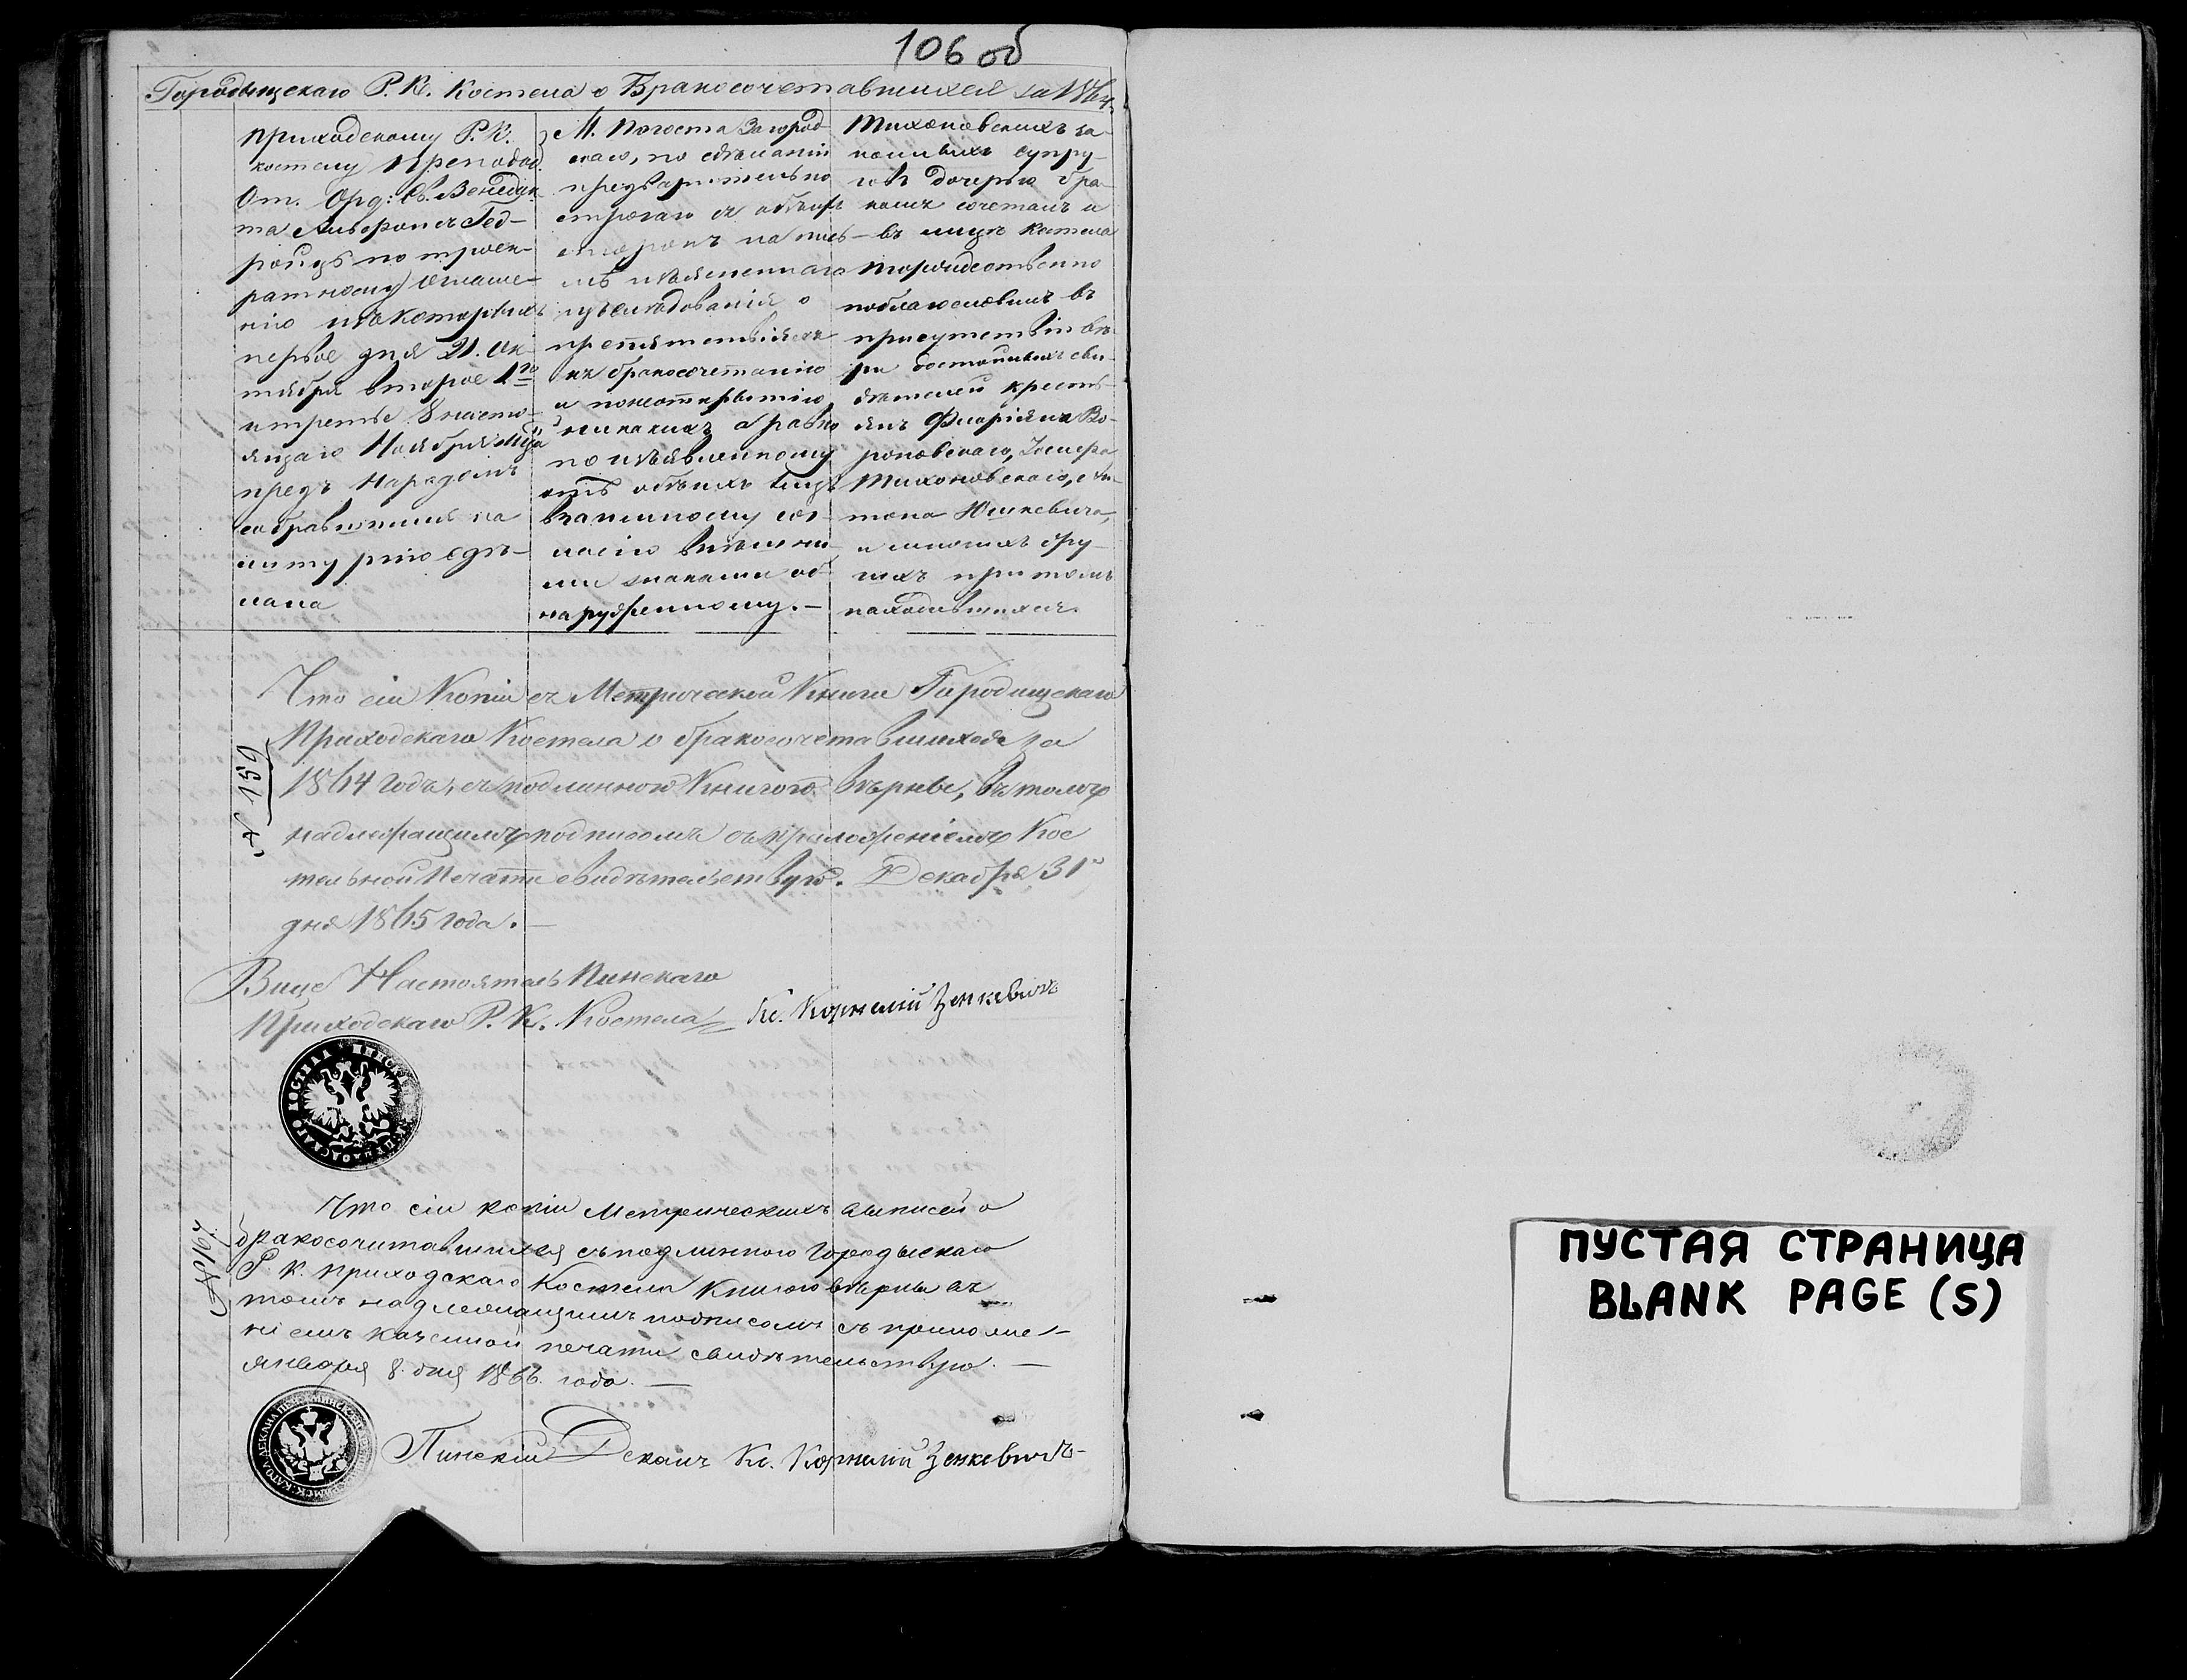 106 об
Городыщскаго Р. К. Костела о Бракосочетавшихся за 1864.
приходскому Р. К.
костелу Преподоб.
От. Орд: Св. Бенедик
та
по троек-
ратному оглаше-
нію изъ которыхъ
первое дня 21. Ок-
тября второе 1го
и третье 8 насто-
ящаго Ноября м̃ца
предъ народомъ
собравшимся на
литургію сдѣ-
лана
М. Погоста Загород
скаго, по сдѣланіи
предварительно
строгаго съ обѣихъ
сторонъ на пись-
мѣ изъясненнаго
изслѣдованія о
препятствіяхъ
къ бракосочетанію
и по неоткрытію
никакихъ а равно
по изъявленному
отъ обѣихъ лицъ
взаимному сог-
ласію внѣшни-
ми знаками об-
наруженному. —
Тихоновскихъ за-
конныхъ супру-
говъ дочерью бра-
комъ сочеталъ и
въ лицѣ Костела
торжественно
поблагословилъ въ
присутствіи вѣ-
ры достойныхъ сви-
дѣтелей крестъ-
янъ Флоріяна Во-
роновскаго, Іосифа
Тихоновскаго, Ан-
тона Юшкевича,
и многихъ дру-
гихъ при томъ
находившихся.
№ 159
Что сіи Копіи съ Метрической Книги Городищскаго
Приходскаго Костела о бракосочетавшихся за
1864 годъ, съ подлинною Книгою вѣрны, въ томъ
надлежащимъ подписомъ съ приложеніемъ Кос
тельной Печати свидѣтельствую. Декабря 31го
дня 1865 года. —
Вице Настоятель Пинскаго
Приходскаго Р. К. Костела Кс. Корнелій Зенкевичъ
Что сіи копіи Метрическихъ выписей о
бракосочитавшихся съ подлинною Городыскаго
Р. К. приходскаго Костела Книгою вѣрны въ
томъ надлежащимъ подписомъ съ приложе-
ніемъ казенной печати свидѣтельствую. —
Января 8. дня 1866. года. —
Пинскій Деканъ Кс. Корнелій Зенкевичъ
ПУСТАЯ СТРАНИЦА
BLANK PAGE (S)